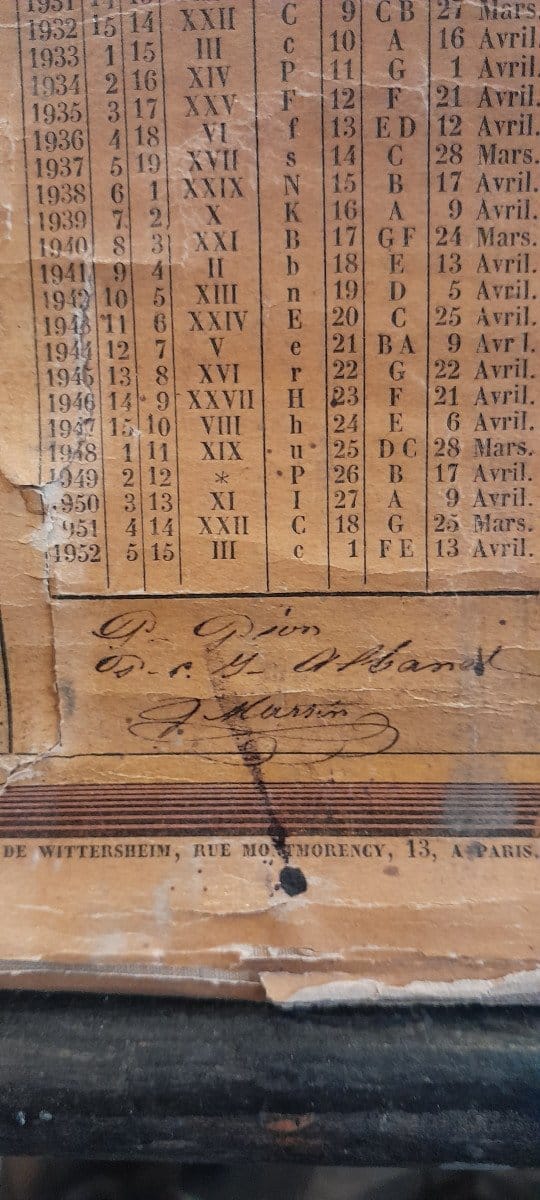 1931 14 13 9 C B 27 Mars.
1932 15 14 XXII C
1933 1 15 III c 10 A 16 Avril.
1934 2 16 XIV P 11 G 1 Avril.
1935 3 17 XXV F 12 F 21 Avril.
1936 4 18 VI f 13 E D 12 Avril.
1937 5 19 XVII s 14 C 28 Mars.
1938 6 1 XXIX N 15 B 17 Avril.
1939 7 2 X K 16 A 9 Avril.
1940 8 3 XXI B 17 G F 24 Mars.
1941 9 4 II b 18 E 13 Avril.
1942 10 5 XIII n 19 D 5 Avril.
1943 11 6 XXIV E 20 C 25 Avril.
1944 12 7 V e 21 B A 9 Avr l.
1945 13 8 XVI r 22 G 22 Avril.
1946 14 9 XXVII H 23 F 21 Avril.
1947 15 10 VIII h 24 E 6 Avril.
1948 1 11 XIX u 25 D C 28 Mars.
1949 2 12 * P 26 B 17 Avril.
1950 3 13 XI I 27 A 9 Avril.
1951 4 14 XXII C 18 G 25 Mars.
1952 5 15 III c 1 F E 13 Avril.
P. Pion
J. Martin
DE WITTERSHEIM, RUE MONTMORENCY, 13, A PARIS.